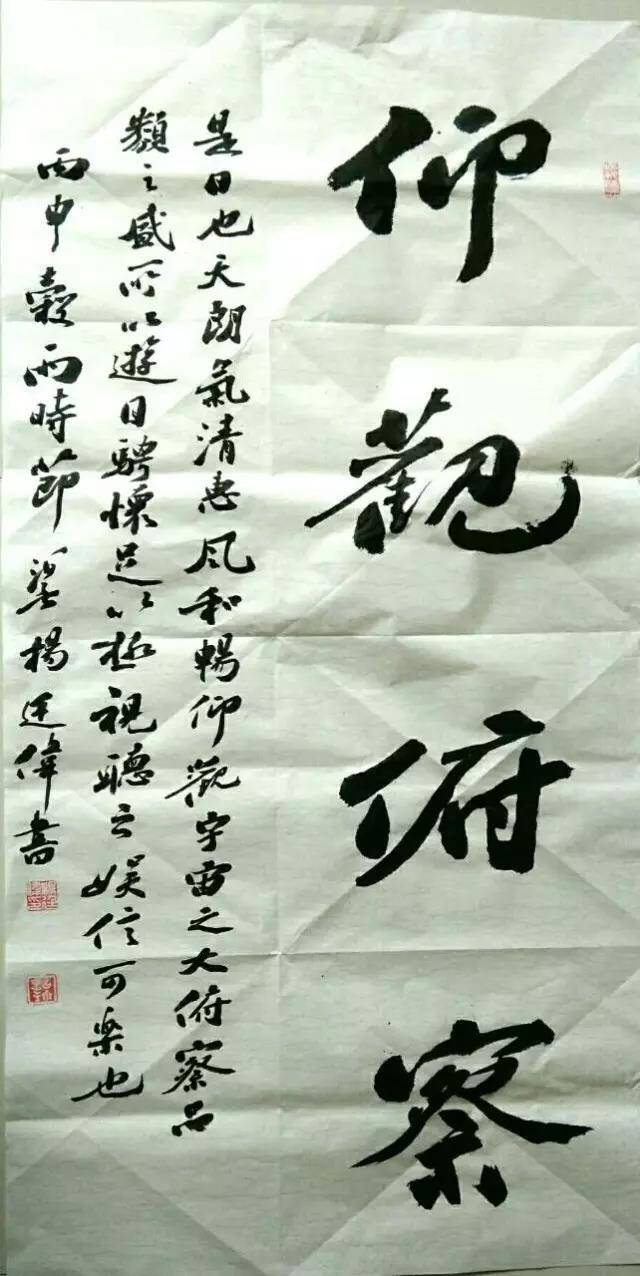 仰觀俯察
是日也天朗氣清惠風和暢仰觀宇宙之大俯察品
類之盛所以遊目騁懷足以極視聽之娛信可樂也
丙申穀雨時節楊廷偉書